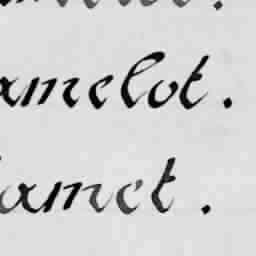 amelot.
amet.